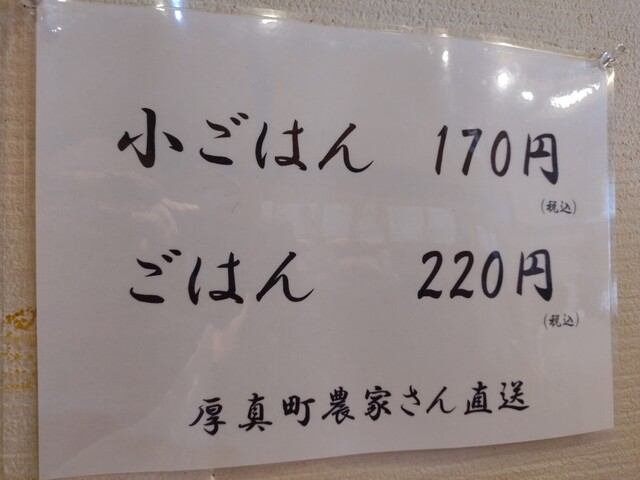 小ごはん 170円
(税込)
ごはん 220円
(税込)
厚真町農家さん直送